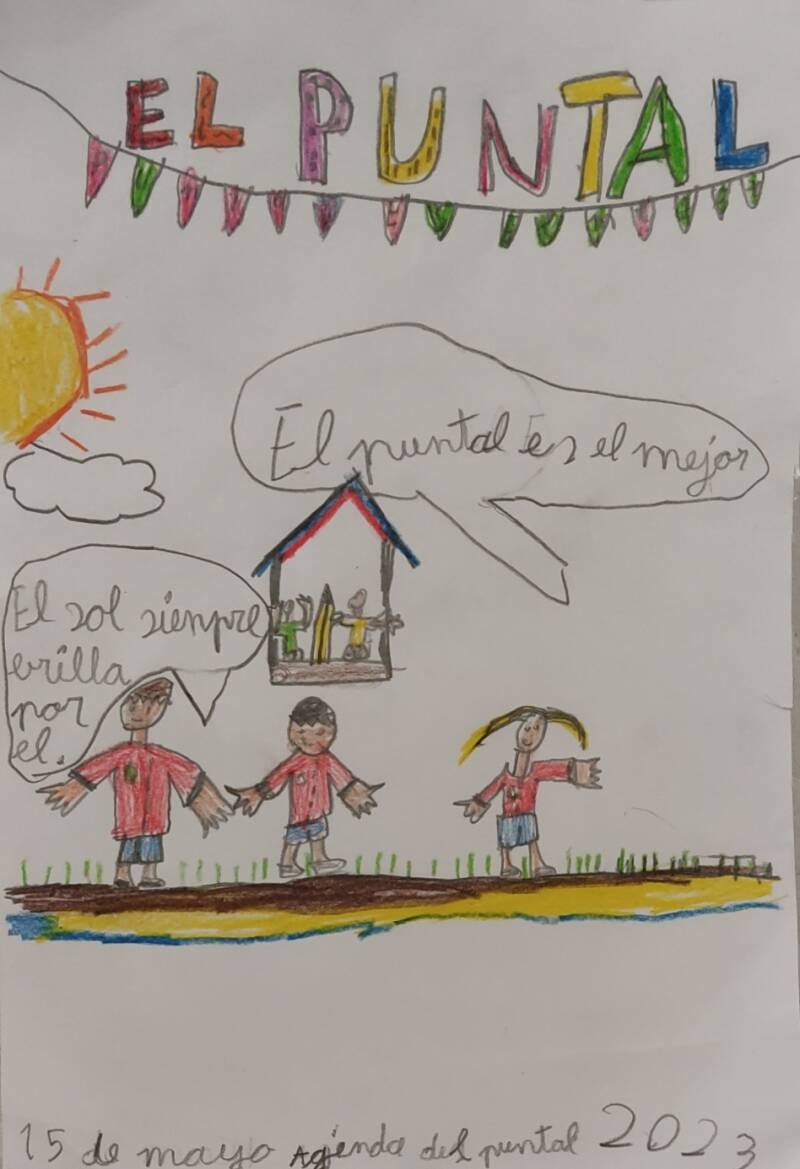 EL PUNTAL
El puntal Es el mejor
El sol sienpre
brilla
por
el.
15 de mayo Agenda del puntal 2023